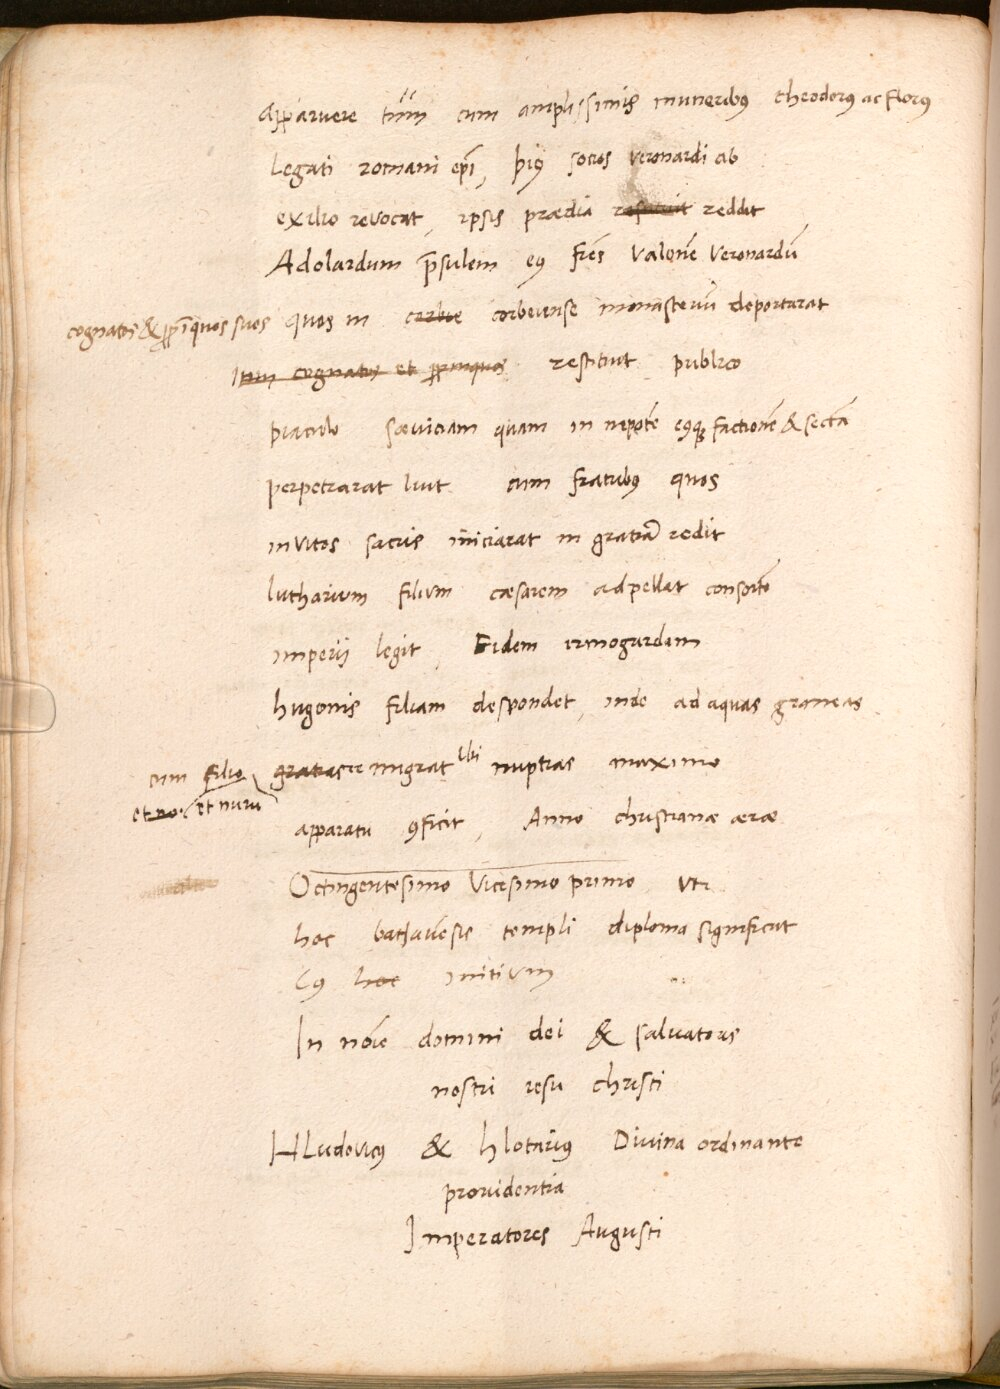 Apparuere tum cum amplissimis muneribus theodorus ac Florus
Legati romani epi, pius socios veronardi ab
exilio revocat, ipsis prædia restituit reddit
Adolardum pSulem eius frēs valonē veronardū
cognatos & ppīquos suos quos in corbie corbeiense monasteriū deportarat
Item cognatos et ppinquos restituit publico
piaculo sæviciam quam in nepotē eiusque factionē & sectā
perpetrarat luit cum fratribus quos
invitos sacris iniciarat in gratiā redit
lutharium filium cæsarem adpellat consortē
imperij legit, Eidem irmogardam
hugonis filiam despondet, inde ad aquas graneas
cum filio et nuru migrat ubi nuptias maximo
apparatu conficit, Anno christianæ æræ
Octingentesimo Vicesimo primo uti
hoc bathavēsis templi diploma significat
Cuius hoc initium
In noīe domini dei & salvatoris
nostri iesu christi
HLudovicus & hlotarius Divina ordinante
providentia
Imperatores Augusti